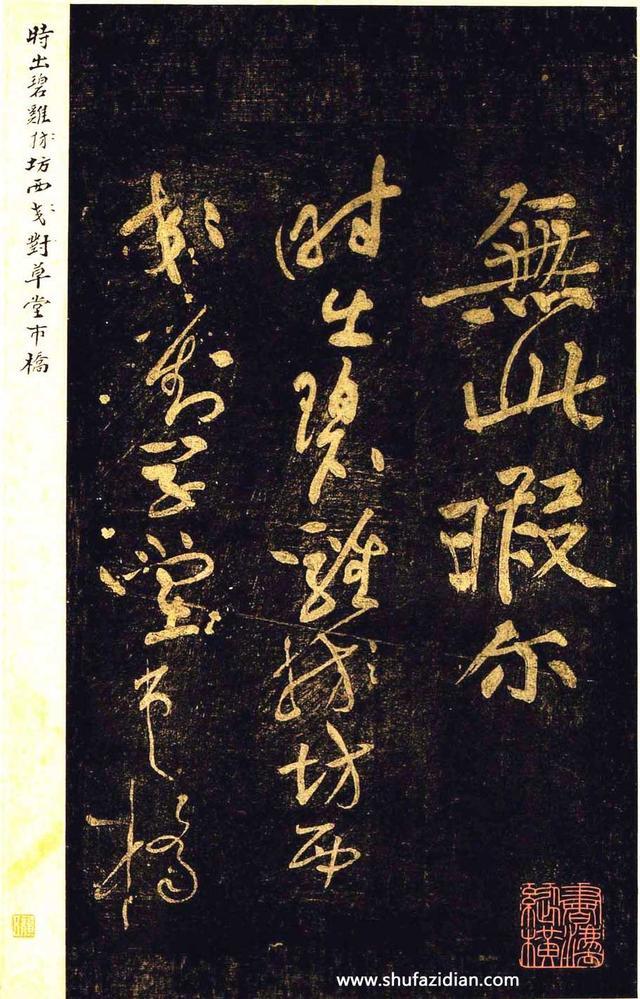 無此暇尔
时出碧雞坊西
對草堂市橋
時出碧雞坊西對草堂市橋
www.shufazidian.com